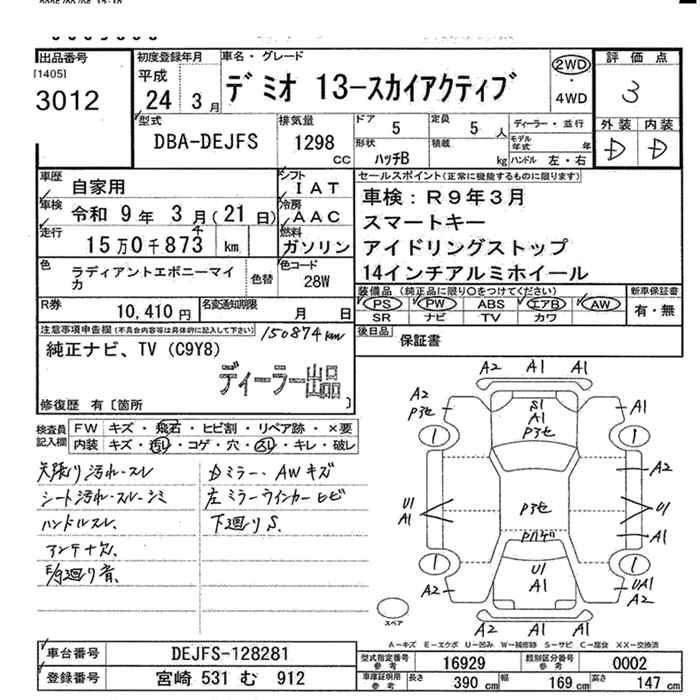 出品番号
[1405]
3012
初度登録年月
平成
24 3 月
車名・グレード
デミオ 13-スカイアクティブ
2WD
・
4WD
評価点
3
型式
DBA-DEJFS
排気量
1298
CC
ドア
5
定員
5 人
ディーラー・並行
モデル年式 年
外装 内装
D D
形状
ハッチB
積載
kg
ハンドル 左・右
車歴
自家用
シフト
IAT
車検
令和 9 年 3 月(21 日)
冷房
AAC
走行
15 万 0 千 873 km
4
燃料
ガソリン
色
ラディアントエボニーマイカ
色替
色コード
28W
R券
10,410 円
名変通知期限
月 日
セールスポイント(正常に機能するものに限ります)
車検：R9年3月
スマートキー
アイドリングストップ
14インチアルミホイール
装備品(純正品に限り○をつけてください)
新車保証書
PS PW ABS エアB AW
SR ナビ TV カワ
有・無
後日品
保証書
注意事項申告欄(不具合内容等は具体的に記入して下さい)
150874km
純正ナビ、TV (C9Y8)
ディーラー出品
修復歴 有〔箇所 〕
検査員記入欄
FW キズ・飛石・ヒビ割・リペア跡・×要
内装 キズ・汚レ・コゲ・穴・スレ・キレ・破レ
天張り汚れ・スレ
シート汚れ・スレ・シミ
ハンドルスレ、
アンテナ欠、
E/g廻り音、
Dミラー、AWキズ
左ミラーウインカーヒビ
下廻りS、
A2 A1 A1
A2
Pヌセ
S1
A1
Pヌセ
A1
1 1
A2
U1
A1
Pヌセ
U1
Pハゲ
A1
1 1
U1
A1
A2
UA1
A2
スペア
A2 A1 A1
A－キズ E－エクボ U－凹み W－補修跡 S－サビ C－腐食 XX－交換済
車台番号
DEJFS-128281
登録番号
宮崎 531 む 912
型式指定番号
参考
16929
類別区分番号
参考
0002
車庫証明用
参考
長さ
390 cm
幅
169 cm
高さ
147 cm